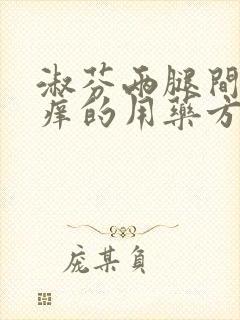 淑芬两腿間
痒的用藥方
庞某負